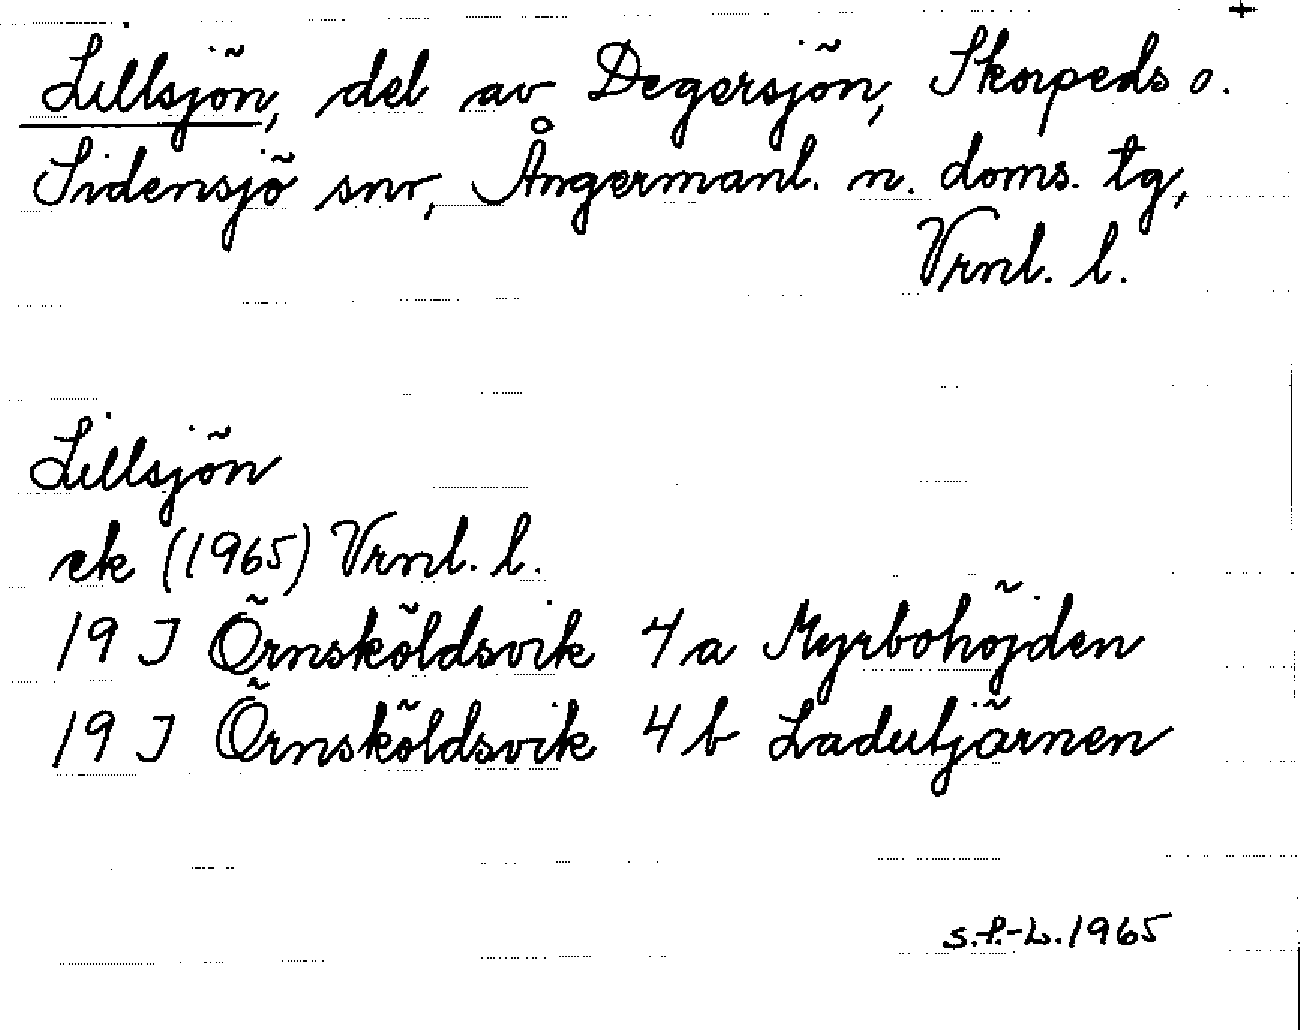 Lillsjön, del av Degersjön, Skorpeds o.
Sidensjö snr, Ångermanl. n. doms. tg,
Vrnl. l.
Lillsjön
ek (1965) Vrnl. l.
19 J Örnsköldsvik 4a Myrbohöjden
19 J Örnsköldsvik 4b Ladutjärnen
1965